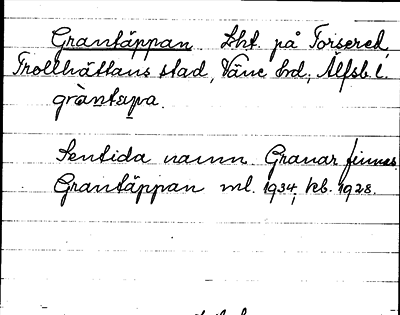 Grantäppan Lht. på Torsered,
Trollhättans stad, Väne hd, Älfsb. l.
gràntępa.
Sentida namn. Granar finnas.
Grantäppan ml. 1934, keb. 1928.